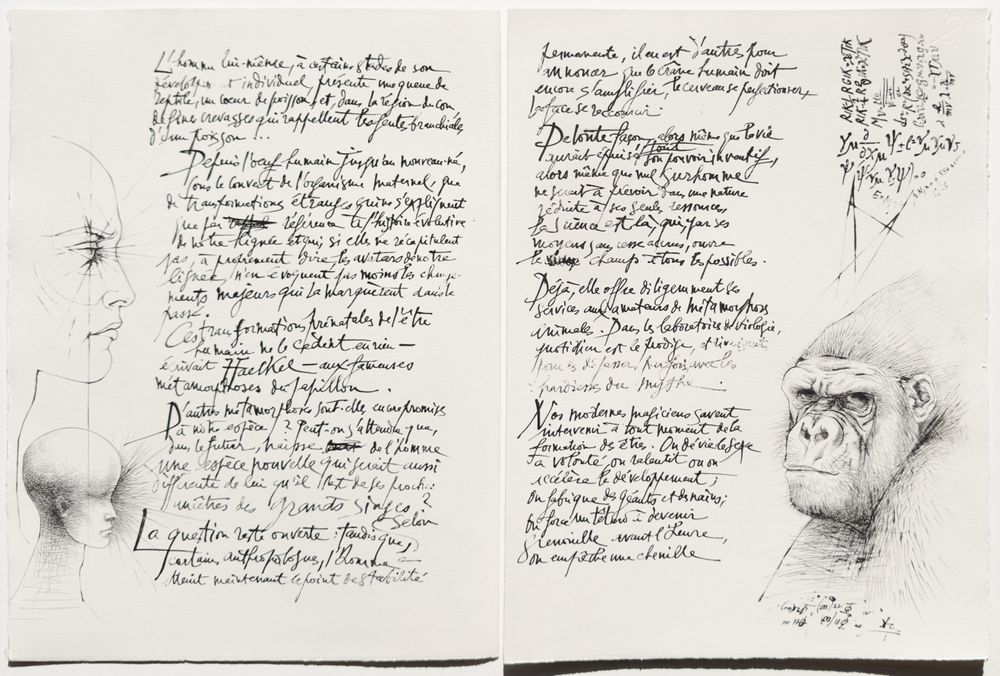 L'homme lui-même, à certains stades de son
développ t individuel, présente une queue de
reptile, un cœur de poisson et, dans la région du cou
de fines crevasses qui rappellent les fentes branchiales
d'un poisson ...
Depuis l'œuf humain jusqu'au nouveau-né,
sous le couvert de l'organisme maternel, que
de transformations étranges qui ne s'expliquent
que par référence à l'histoire évolutive
de notre lignée et qui, si elles ne récapitulent
pas, à proprement dire les avatars de notre
lignée, n'en évoquent pas moins les change-
ments majeurs qui la marquèrent dans le
passé.
Ces transformations prénatales de l'être
humain ne le cèdent en rien —
écrivait Haeckel — aux fameuses
métamorphoses du papillon.
D'autres métamorphoses sont-elles encore promises
à notre espèce ? Peut-on s'attendre que,
dans le futur, naisse de l'homme
une espèce nouvelle qui serait aussi
différente de lui qu'il l'est de ses proches
ancêtres des grands singes ?
La question reste ouverte : tandis que, Selon
certains anthropologues, l'homme a
atteint maintenant le point de stabilité
permanente, il en est d'autres pour
annoncer que le crâne humain doit
encore s'amplifier, le cerveau se perfectionner,
la face se raccourcir.
De toute façon, alors même que la vie
aurait épuisé tout son pouvoir inventif,
alors même que nul surhomme
ne serait à prévoir dans une nature
réduite à ses seules ressources,
la science est là, qui, par ses
moyens sans cesse accrus, ouvre
le champ à tous les possibles.
Déjà, elle offre diligemment ses
services aux amateurs de métamorphoses
animales. Dans les laboratoires de biologie,
quotidien est le prodige, et l'on vient
parfois avec les
hardiesses du Mythe.
Nos modernes magiciens savent
intervenir à tout moment de la
formation des êtres. On dévie le sexe
à volonté, on ralentit ou on
accélère le développement ;
on fabrique des géants et des nains ;
on force un têtard à devenir
grenouille avant l'heure,
on empêche une chenille